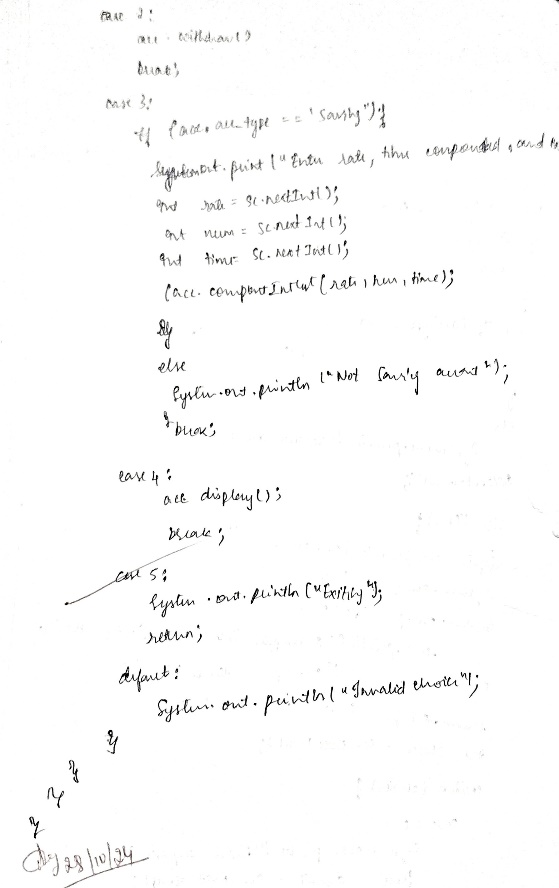 case 2:
acc . withdraw()
break;
case 3:
if (acc. acc_type == "Saving"){
System.out.print ("Enter rate, time compounded , and
int rate = sc.nextInt();
int num = sc.next Int();
int time = sc. next Int();
(acc. compout Interest (rate, num, time);
}
else
System.out.println ("Not Saving account");
} break;
case 4 :
acc display();
break;
case 5:
System .out. println ("Exiting");
return;
default:
System. out. println ("Invalid choice");
}
}
}
}
28/10/24